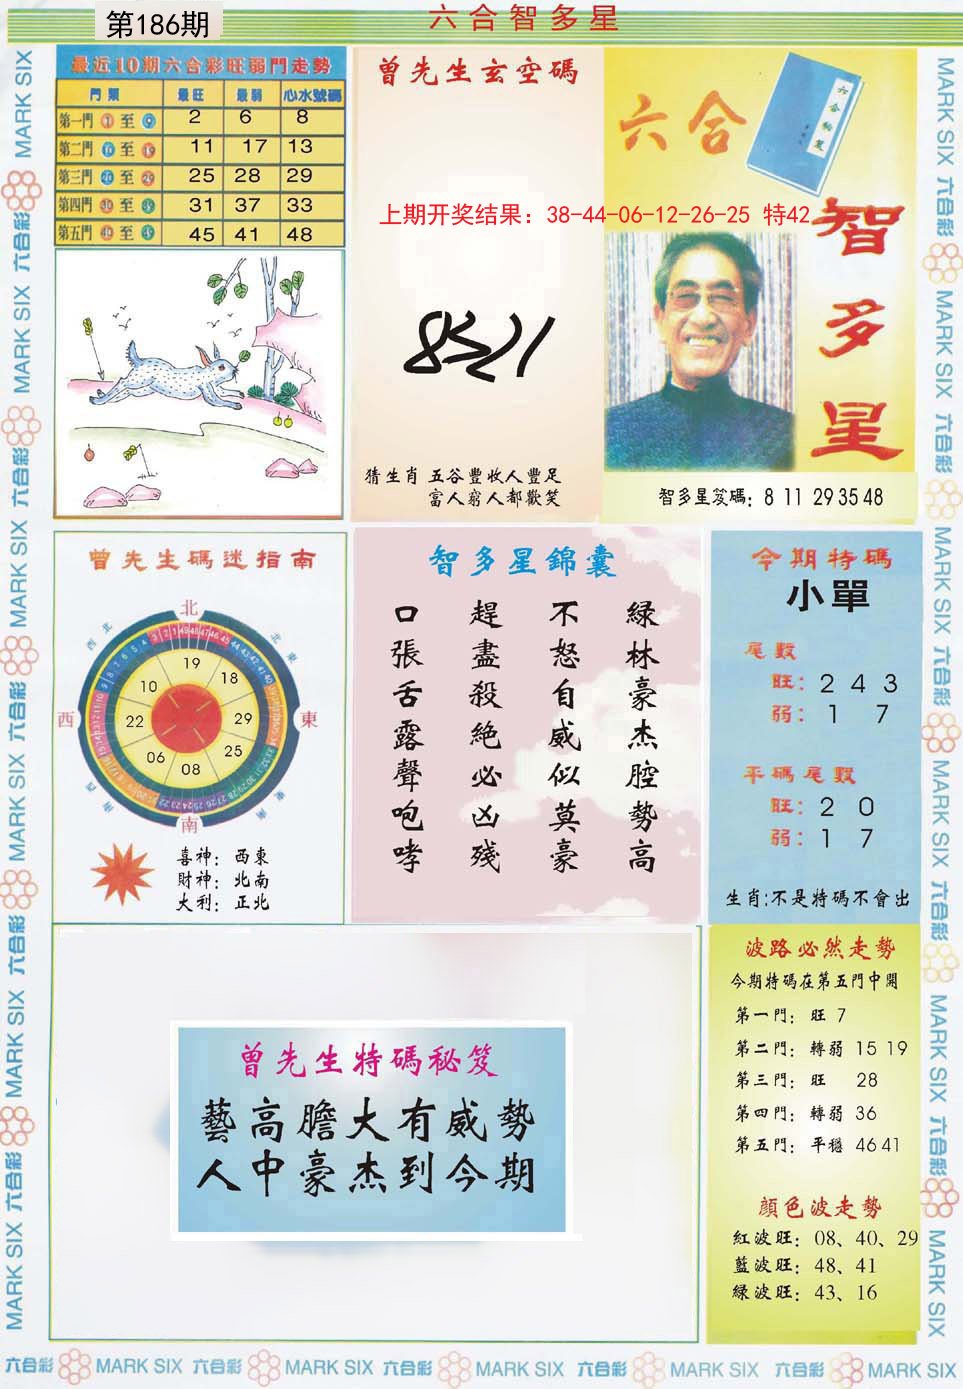 第186期
六合智多星
最近10期六合彩旺弱門走勢
門類 最旺 最弱 心水號碼
第一門 1 至 9 2 6 8
第二門 10 至 19 11 17 13
第三門 20 至 29 25 28 29
第四門 30 至 39 31 37 33
第五門 40 至 49 45 41 48
曾先生玄空碼
上期开奖结果：38-44-06-12-26-25 特42
猜生肖 五谷豐收人豐足
富人窮人都歡笑
六合
智多星
智多星笈碼：8 11 29 35 48
曾先生碼迷指南
北
西北
東北
西
東
西南
東南
南
19
18
29
25
08
06
22
10
喜神：西東
財神：北南
大利：正北
智多星錦囊
綠林豪杰腔勢高
不怒自威似莫豪
趕盡殺絕必凶殘
口張舌露聲咆哮
今期特碼
小單
尾數
旺：2 4 3
弱：1 7
平碼尾數
旺：2 0
弱：1 7
生肖:不是特碼不會出
曾先生特碼秘笈
藝高膽大有威勢
人中豪杰到今期
波路必然走勢
今期特碼在第五門中開
第一門：旺 7
第二門：轉弱 15 19
第三門：旺 28
第四門：轉弱 36
第五門：平穩 46 41
顔色波走勢
紅波旺：08、40、29
藍波旺：48、41
綠波旺：43、16
六合彩 MARK SIX 六合彩 MARK SIX 六合彩 MARK SIX 六合彩 MARK SIX 六合彩 MARK SIX